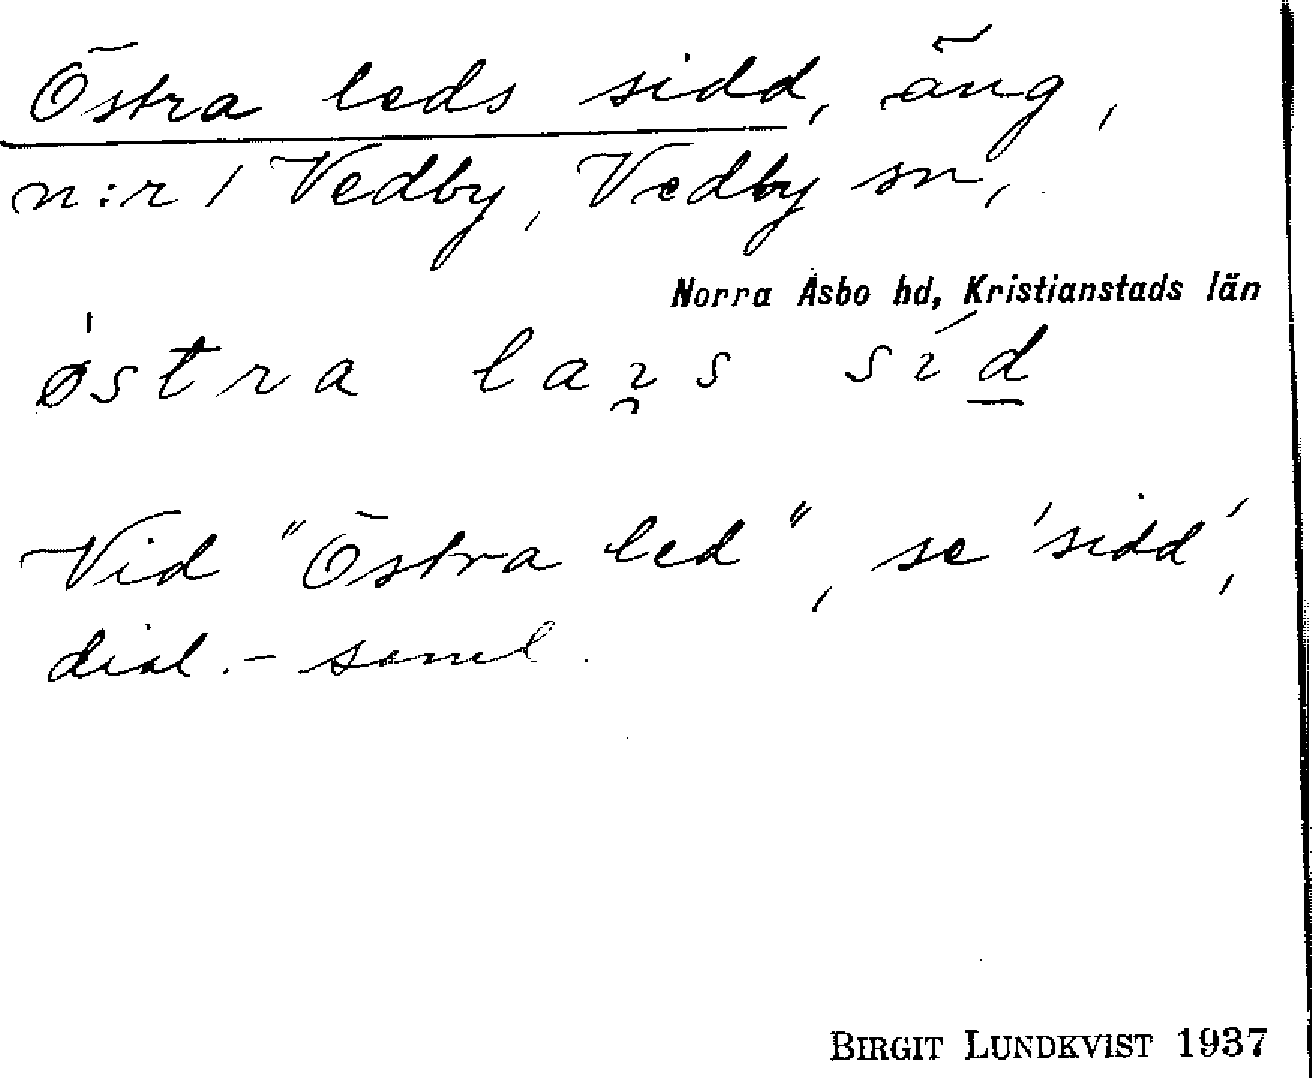 Östra leds sidd, äng,
n:r 1 Vedby, Vedby sn,
Norra Åsbo hd, Kristianstads län
østra laı̯s sı́d
Vid "Östra led", se 'sidd',
dial.- saml.
BIRGIT LUNDKVIST 1937